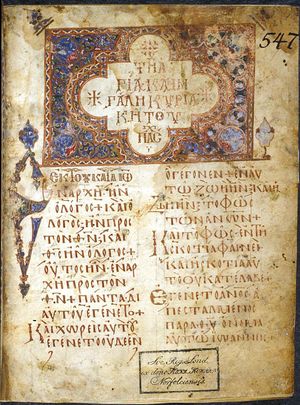 547
ΤΗ Α
ΓΙΑ ΚΑΙ Μ
ΓΑΛΗ ΚΥΡΙΑ
ΚΗ ΤΟΥ
ΠΑΣ
ΕΚ ΤΟΥ ΚΑΤΑ ΙΩ
ΕΝ ΑΡΧΗ ΗΝ
Ο ΛΟΓΟΣ + ΚΑΙ Ο
ΛΟΓΟΣ ΗΝ ΠΡΟΣ
ΤΟΝ ΘΝ + ΚΑΙ
ΘΣ ΗΝ Ο ΛΟΓΟΣ +
ΟΥΤΟΣ ΗΝ ΕΝ ΑΡ
ΧΗ ΠΡΟΣ ΤΟΝ
ΘΝ + ΠΑΝΤΑ ΔΙ
ΑΥΤΟΥ ΕΓΕΝΕΤΟ +
ΚΑΙ ΧΩΡΙΣ ΑΥΤΟΥ
ΕΓΕΝΕΤΟ ΟΥΔΕ ΕΝ
Ο ΓΕΓΟΝΕΝ + ΕΝ ΑΥ
ΤΩ ΖΩΗ ΗΝ + ΚΑΙ Η
ΖΩΗ ΗΝ ΤΟ ΦΩΣ
ΤΩΝ ΑΝΩΝ +
ΚΑΙ ΤΟ ΦΩΣ ΕΝ ΤΗ
ΣΚΟΤΙΑ ΦΑΙΝΕΙ +
ΚΑΙ Η ΣΚΟΤΙΑ ΑΥ
ΤΟ ΟΥ ΚΑΤΕΛΑΒΕ +
ΕΓΕΝΕΤΟ ΑΝΟΣ Α
ΠΕΣΤΑΛΜΕΝΟΣ
ΠΑΡΑ ΘΥ ΟΝΟΜΑ
ΑΥΤΩ ΙΩΑΝΝΗΣ
Soc. Reg. Lond
ex dono HENR. HOWARD
Norfolciensis.